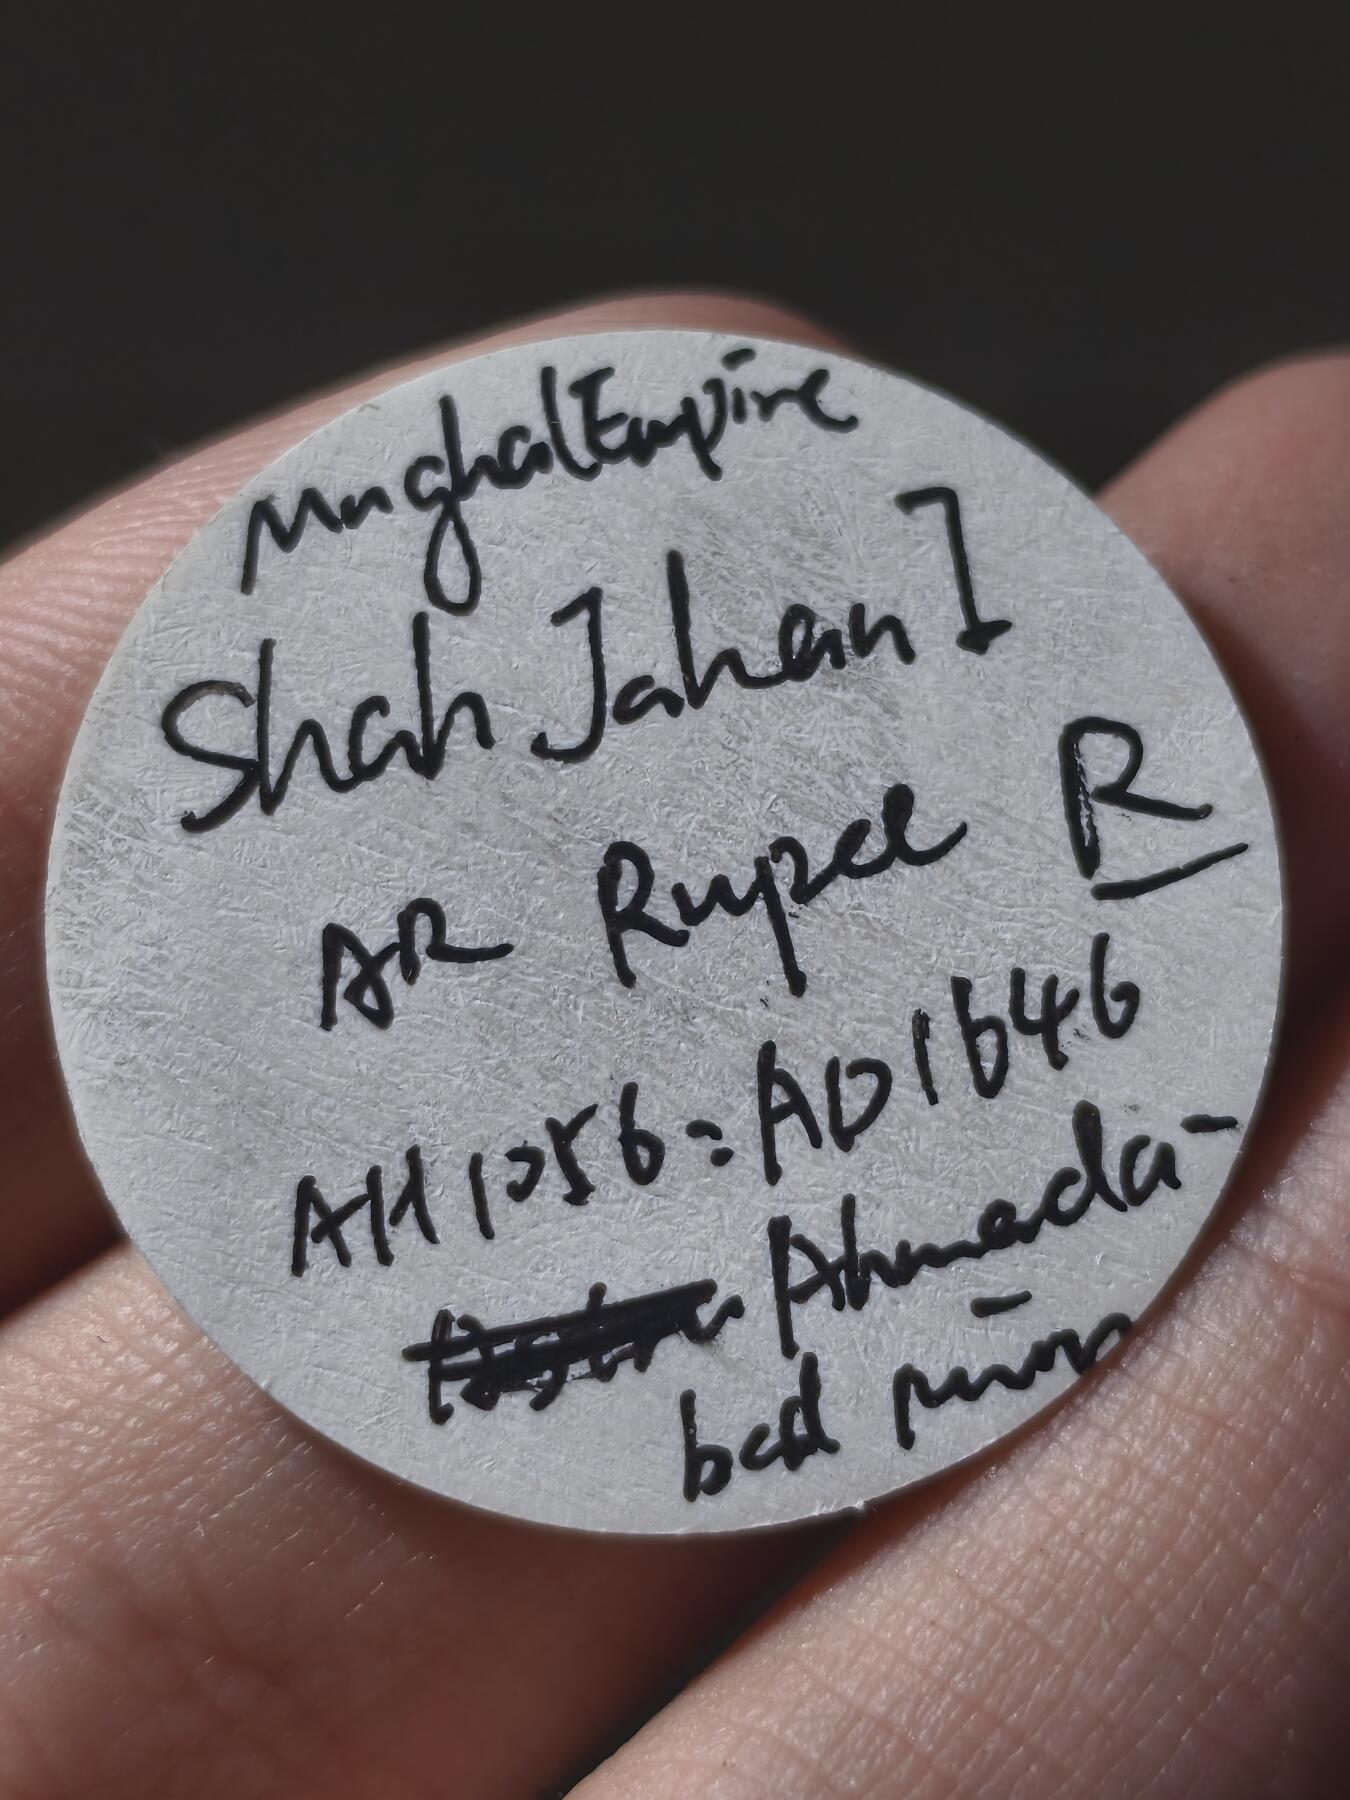 Mughal Empire
Shah Jahan I
AR Rupee R
AH 1056 = AD 1646
Ahmada-
bad mint